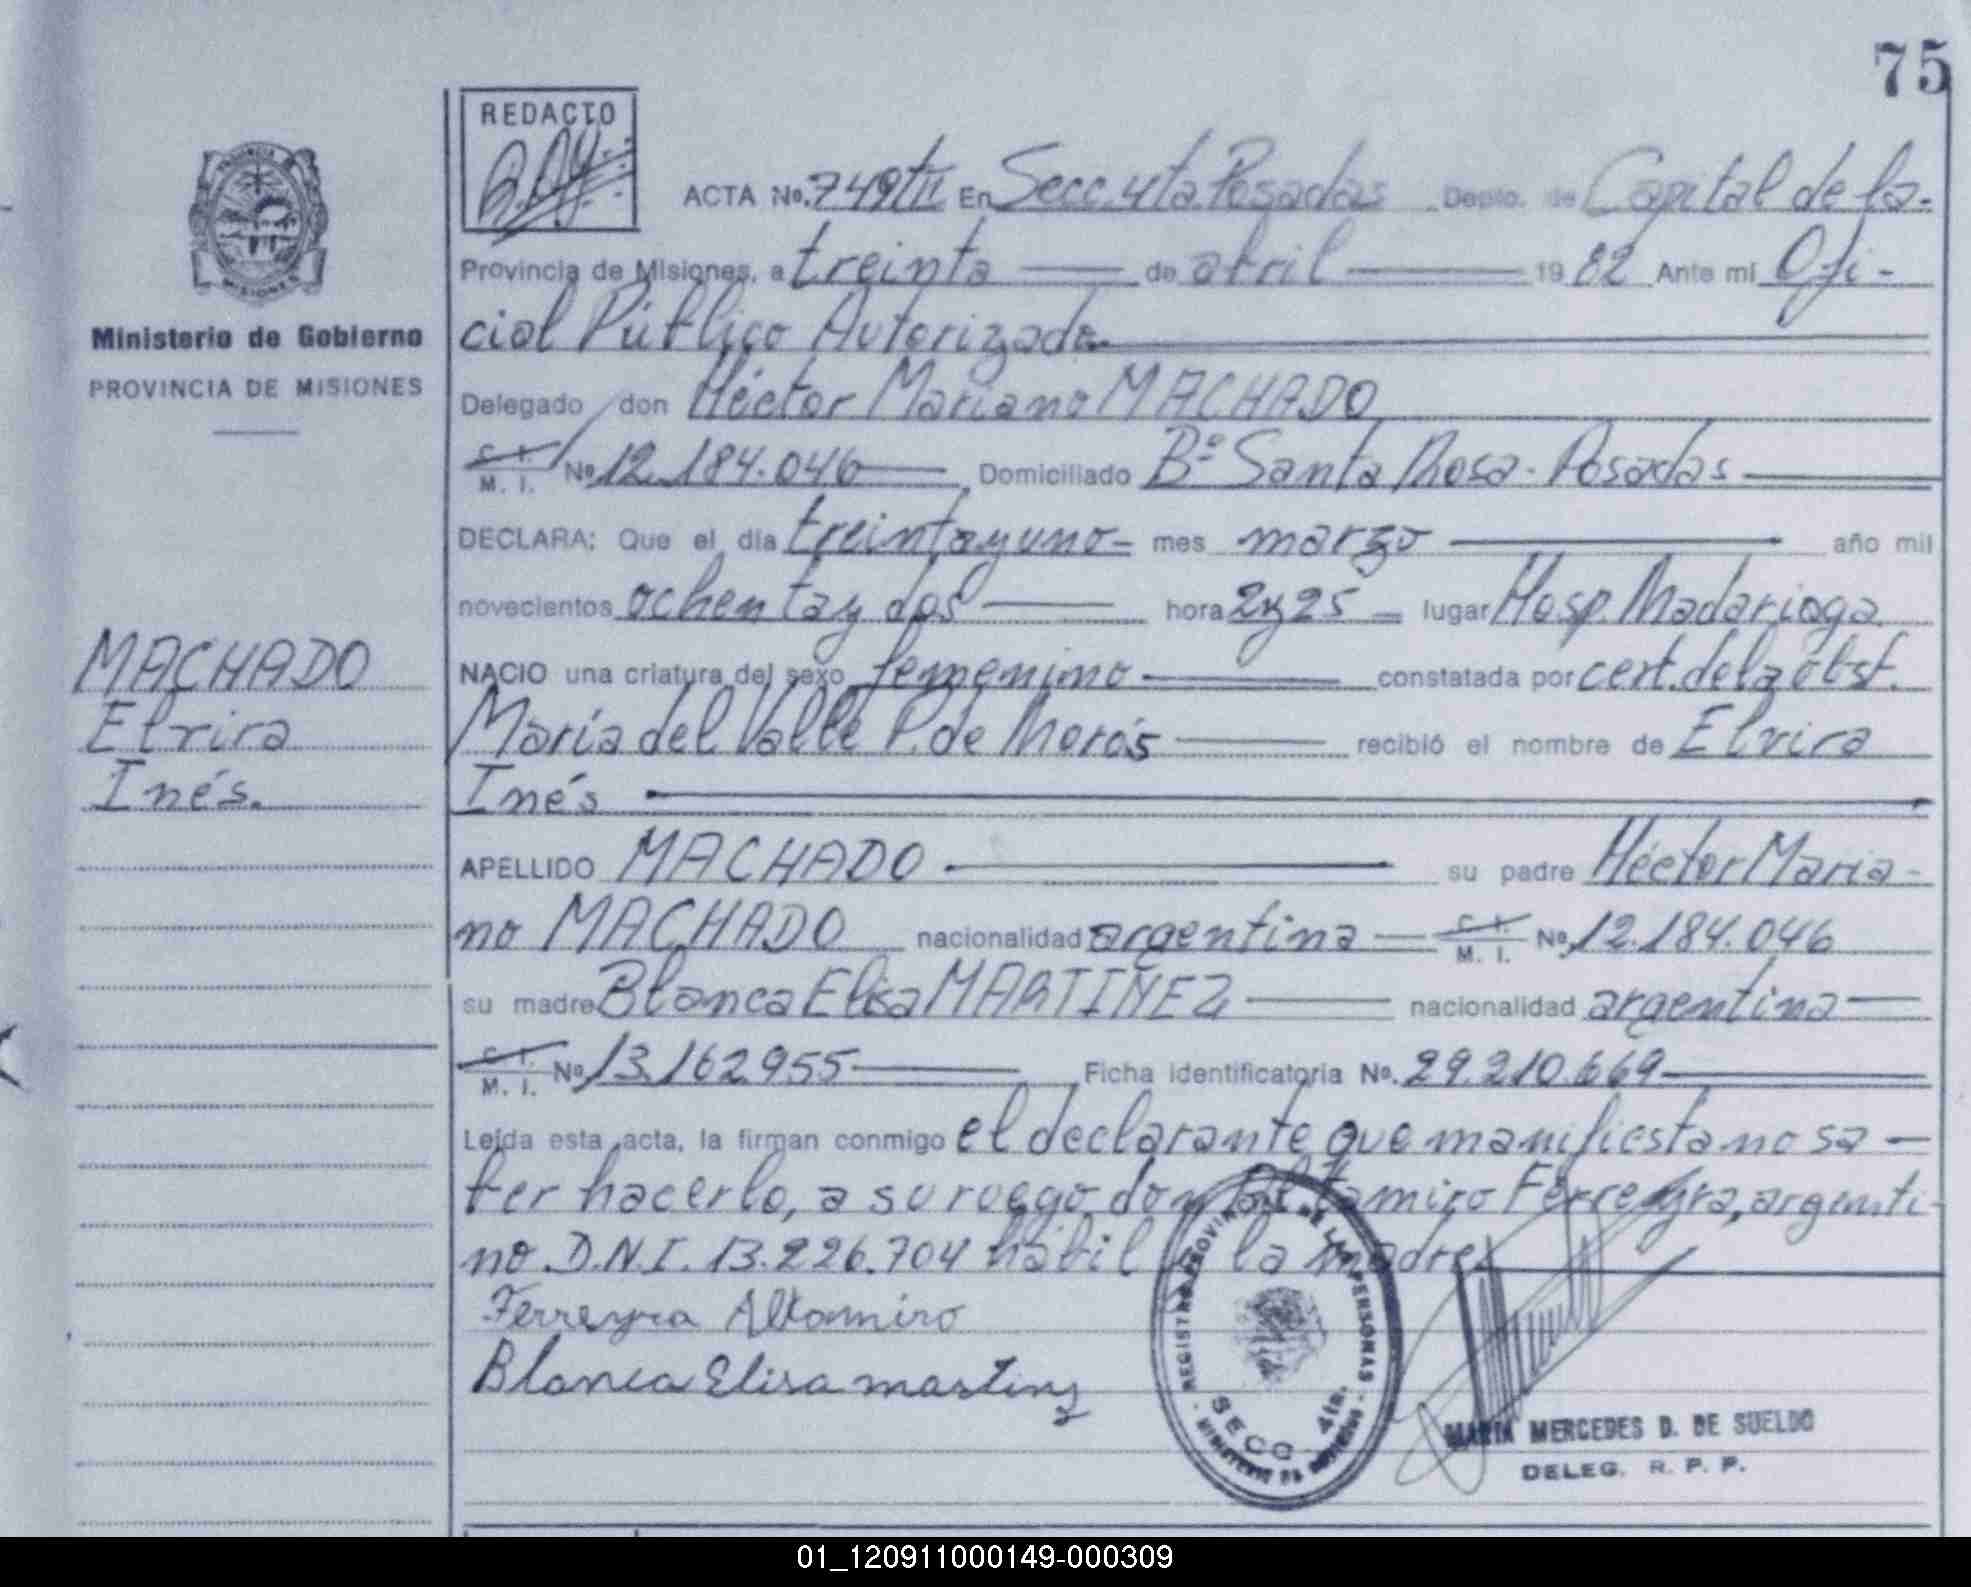 75
REDACTO
PROVINCIA DE
MISIONES
ACTA No. 749 tII En Secc. 4ta. Posadas Depto. de Capital de la-
Provincia de Misiones, a treinta de abril 1982 Ante mi Ofi-
Ministerio de Gobierno
PROVINCIA DE MISIONES
cial Público Autorizado
Delegado don Héctor Mariano MACHADO
C. I.
M. I. No 12.184.046 Domiciliado Bº Santa Rosa - Posadas
DECLARA: Que el día treinta y uno- mes marzo año mil
novecientos ochenta y dos hora lugar Hosp. Madariaga
MACHADO
Elvira
Inés.
NACIO una criatura del sexo femenino constatada por cert. de la obst.
María del Valle P. de Morás recibió el nombre de Elvira
Inés
APELLIDO MACHADO su padre Héctor Maria-
no MACHADO nacionalidad argentina C. I.
M. I. No 12.184.046
su madre Blanca Elisa MARTIÑEZ nacionalidad argentina
C. I.
M. I. No 13.162.955 Ficha identificatoria No. 29.210.669
Leída esta acta, la firman conmigo el declarante que manifiesta no sa-
ber hacerlo, a su ruego don Altamiro Ferreyra, argenti-
no D.N.I. 13.226.704 hábil la madre
Ferreyra Altamiro
Blanca Elisa martinz
REGISTRO PROVINCIAL DE LAS PERSONAS
SECC. 4ta.
MARIA MERCEDES D. DE SUELDO
DELEG. R. P. P.
01_120911000149-000309